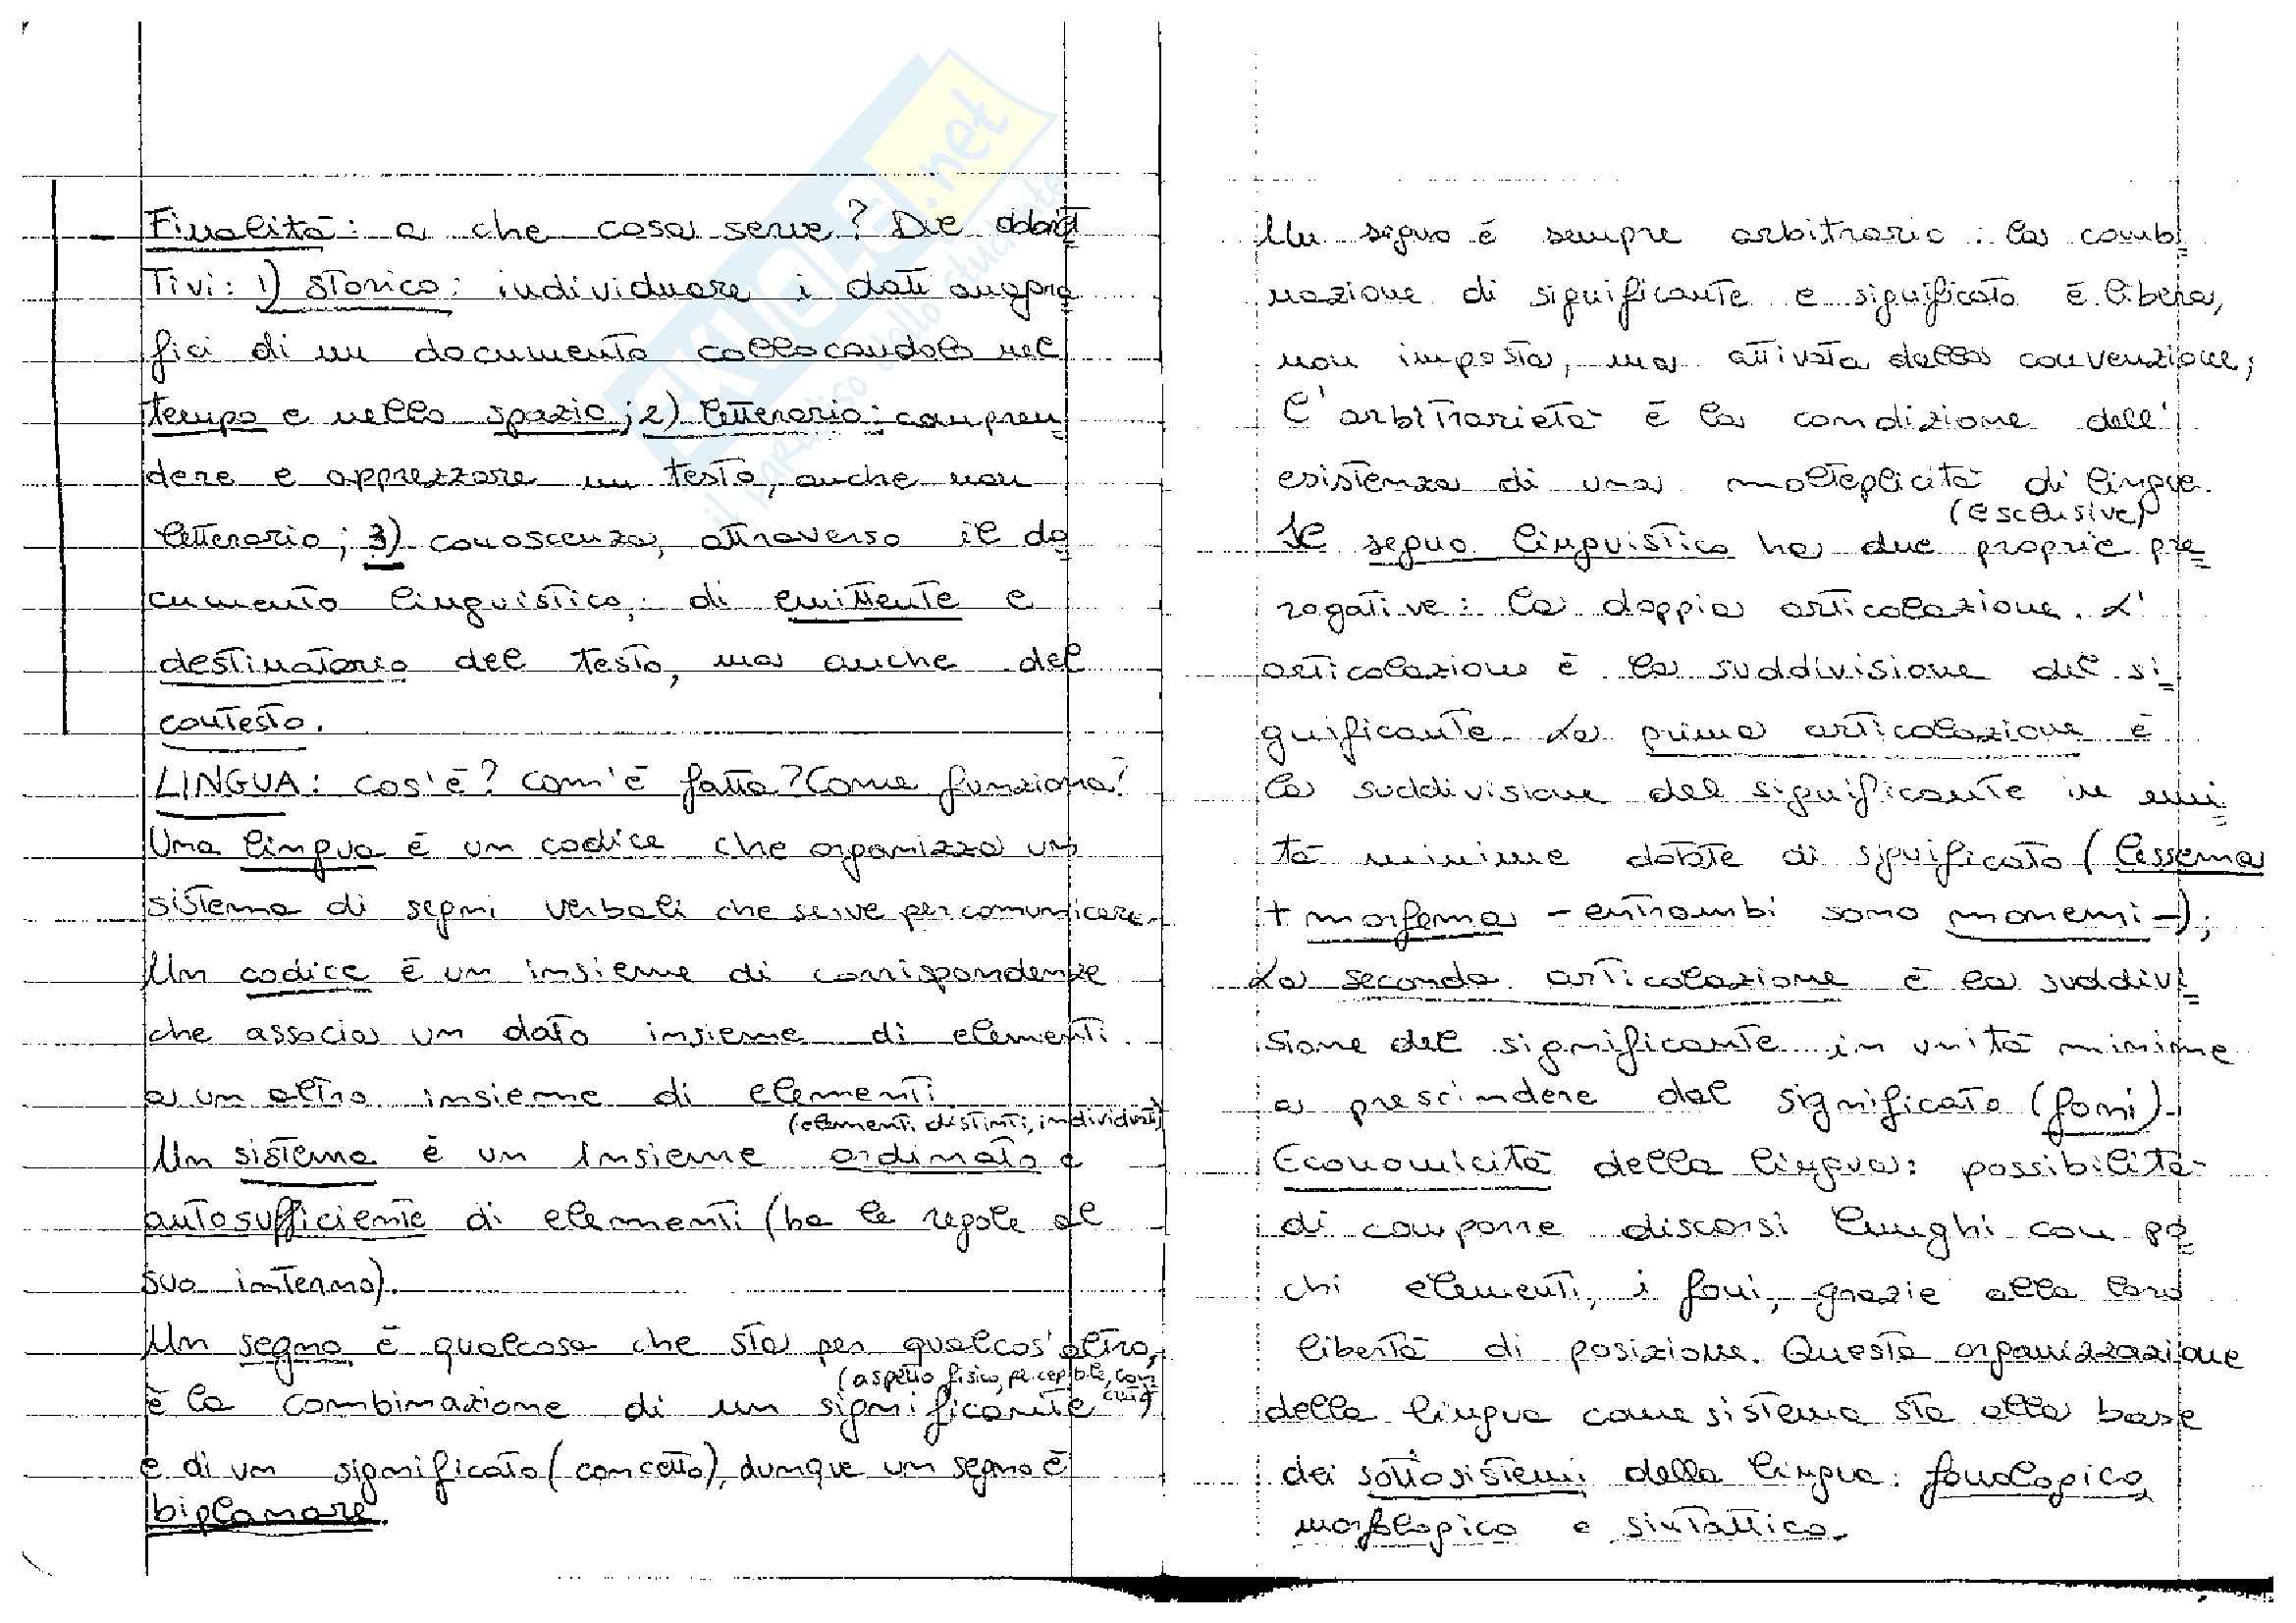 - Finalità: a che cosa serve? Due obbiet
tivi: 1) storico: individuare i dati anagra
fici di un documento collocandolo nel
tempo e nello spazio; 2) letterario: compren
dere e apprezzare un testo, anche non
letterario; 3) conoscenza, attraverso il do
cumento linguistico, di emittente e
destinatario del testo, ma anche del
contesto.
LINGUA: cos'è? Com'è fatta? Come funziona?
Una lingua è un codice che organizza un
sistema di segni verbali che serve per comunicare.
Un codice è un insieme di corrispondenze
che associa un dato insieme di elementi
a un altro insieme di elementi.
(elementi distinti, individuati)
Un sistema è un insieme ordinato e
autosufficiente di elementi (ha le regole al
suo interno).
Un segno è qualcosa che sta per qualcos'altro,
(aspetto fisico, percepibile, con
è la combinazione di un significante
e di un significato (concetto), dunque un segno è
biplanare.
Un segno è sempre arbitrario: la combi
nazione di significante e significato è libera,
non imposta, ma attivata dalla convenzione;
l'arbitrarietà è la condizione dell'
esistenza di una molteplicità di lingue.
(esclusive)
Il segno linguistico ha due proprie pre
rogative: la doppia articolazione. L'
articolazione è la suddivisione del si
gnificante. La prima articolazione è
la suddivisione del significante in uni
tà minime dotate di significato (lessema
+ morfema - entrambi sono monemi -);
La seconda articolazione è la suddivi
sione del significante in unità minime
a prescindere dal significato (foni).
Economicità della lingua: possibilità
di comporre discorsi lunghi con po
chi elementi, i foni, grazie alla loro
libertà di posizione. Questa organizzazione
della lingua come sistema sta alla base
dei sottosistemi della lingua: fonologico,
morfologico e sintattico.
SKUOLA.net
il paradiso dello studente